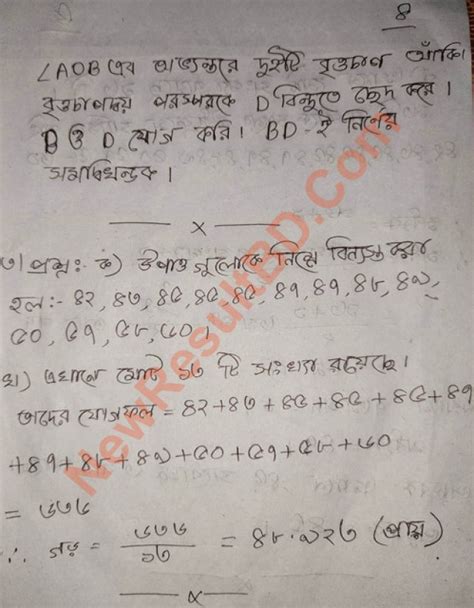 ৪
∠AOB এর অভ্যন্তরে দুইটি বৃত্তচাপ আঁকি।
বৃত্তচাপদ্বয় পরস্পরকে D বিন্দুতে ছেদ করে।
B ও D যোগ করি। BD-ই নির্ণেয়
সমদ্বিখন্ডক।
x
৩) প্রশ্নঃ ক) উপাত্ত গুলোকে নিম্নে বিন্যস্ত করা
হল:- ৪২, ৪৩, ৪৫, ৪৫, ৪৫, ৪৭, ৪৭, ৪৮, ৪৯,
৫০, ৫৭, ৫৮, ৬০।
খ) এখানে মোট ১৩ টি সংখ্যা রয়েছে।
তাদের যোগফল = ৪২+৪৩+৪৫+৪৫+৪৫+৪৭
+৪৭+৪৮+৪৯+৫০+৫৭+৫৮+৬০
= ৬৩৬
∴ গড় = ৬৩৬/১৩ = ৪৮.৯২৩ (প্রায়)
x
NewResultBD.Com